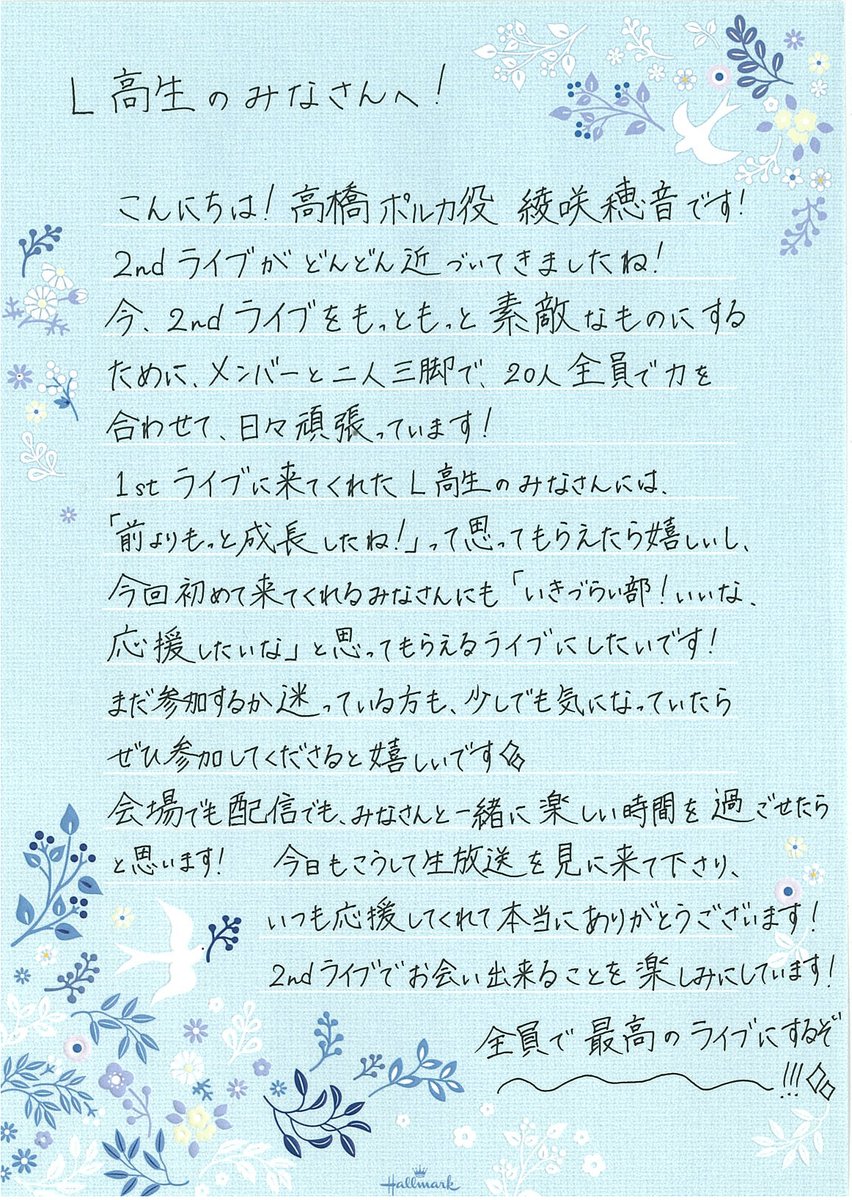 L高生のみなさんへ!
こんにちは!高橋ポルカ役 綾咲穂音です!
2ndライブがどんどん近づいてきましたね!
今、2ndライブをもっともっと素敵なものにする
ために、メンバーと二人三脚で、20人全員で力を
合わせて、日々頑張っています!
1stライブに来てくれたL高生のみなさんには、
「前よりもっと成長したね!」って思ってもらえたら嬉しいし、
今回初めて来てくれるみなさんにも「いきづらい部!いいな、
応援したいな」と思ってもらえるライブにしたいです!
まだ参加するか迷っている方も、少しでも気になっていたら
ぜひ参加してくださると嬉しいです
会場でも配信でも、みなさんと一緒に楽しい時間を過ごせたら
と思います! 今日もこうして生放送を見に来て下さり、
いつも応援してくれて本当にありがとうございます!
2ndライブでお会い出来ることを楽しみにしています!
全員で最高のライブにするぞ
〜!!!
Hallmark